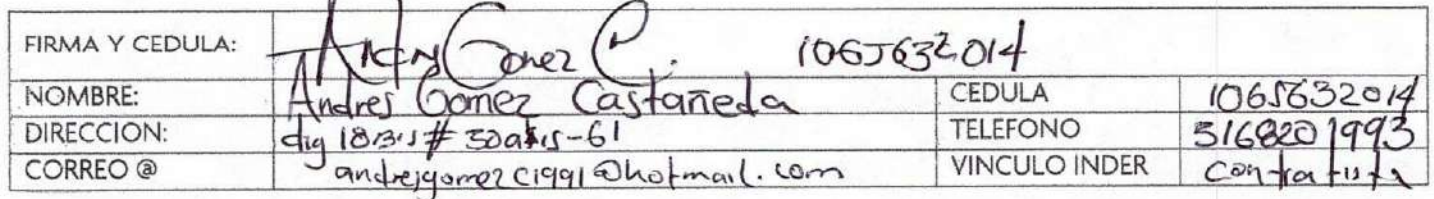 FIRMA Y CEDULA: Andres Gomez C. 1065632014
NOMBRE: Andres Gomez Castañeda CEDULA 1065632014
DIRECCION: dig 18Bis # 30a bis-61 TELEFONO 3168201993
CORREO @ andresgomezc1991@hotmail.com VINCULO INDER Contratista